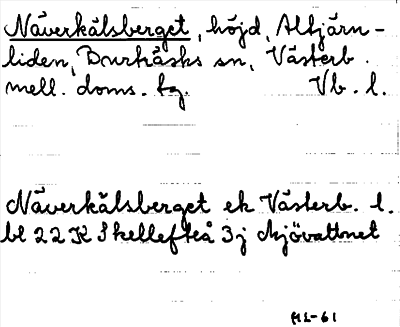 Näverkälsberget, höjd, Altjärn-
liden, Burträsks sn, Västerb.
mell. doms. tg. Vb. l.
Näverkälsberget ek Västerb. l.
bl 22 K Skellefteå 3j Sjövattnet
HL-61